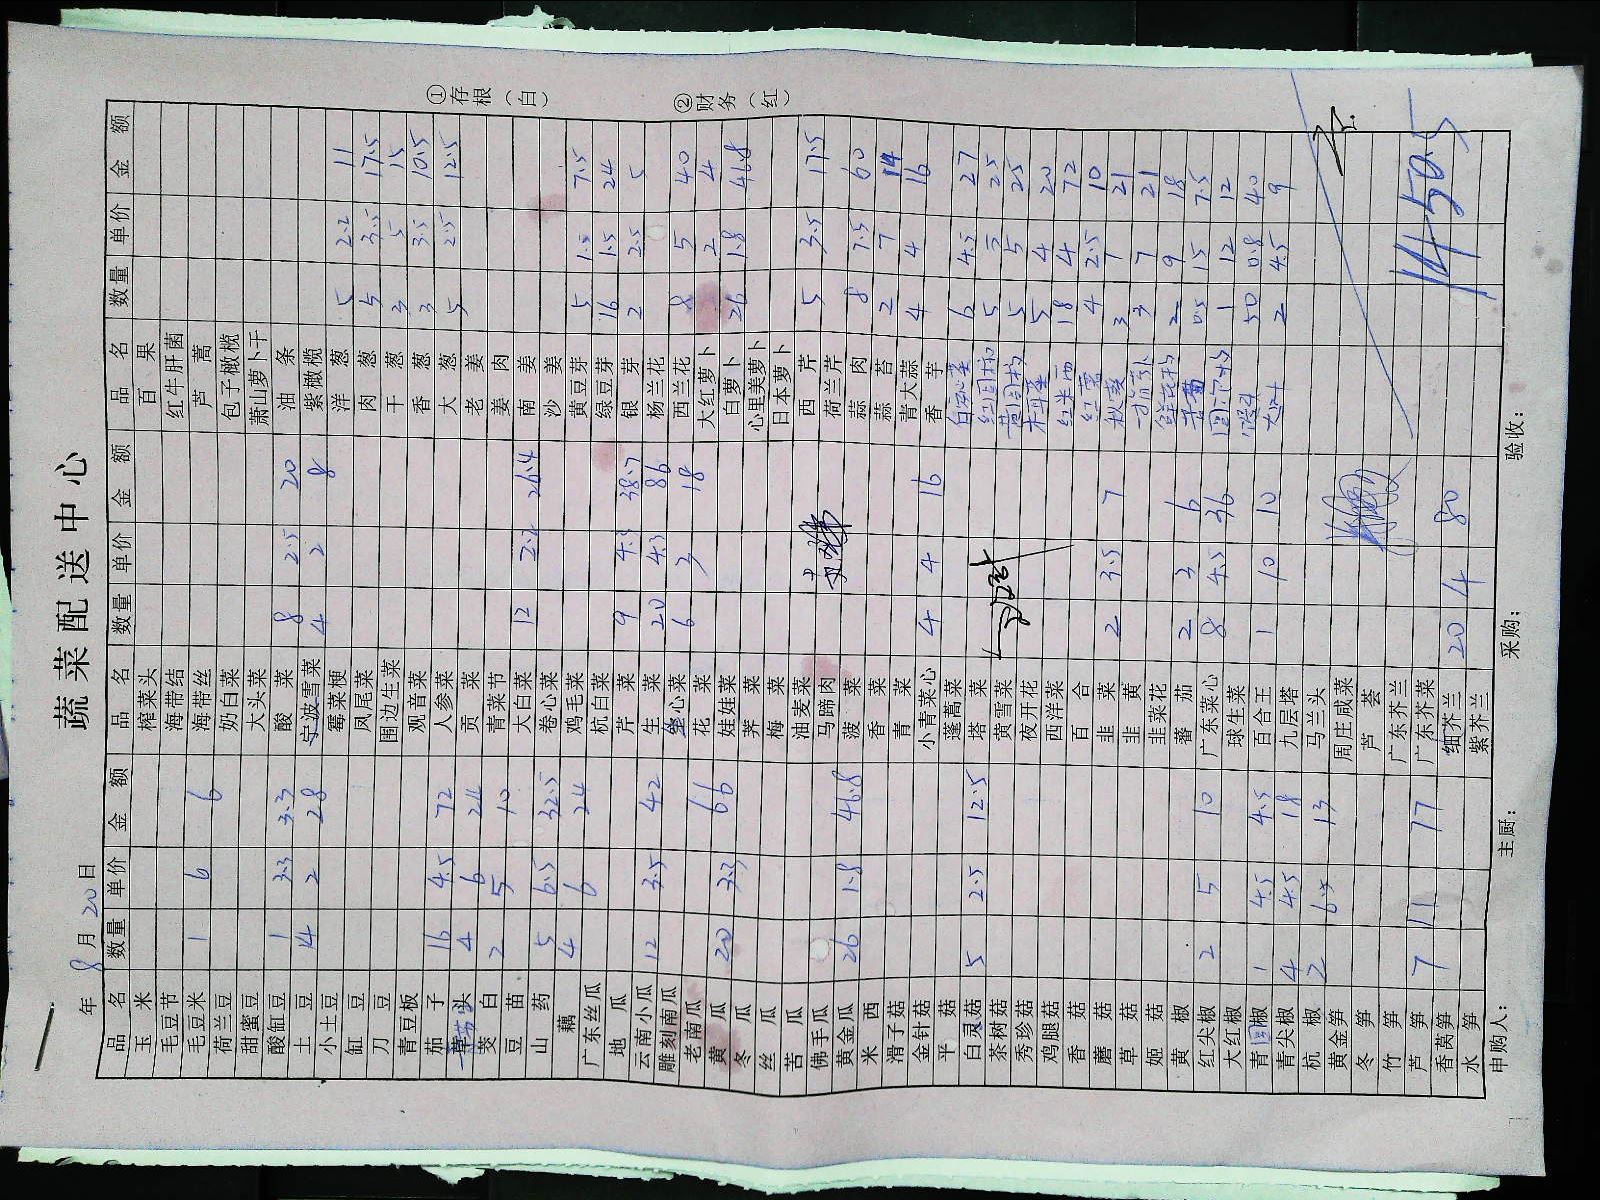 蔬菜配送中心
年 8 月 20 日
① 存根（白）
② 财务（红）
品名 数量 单价 金额 品名 数量 单价 金额 品名 数量 单价 金额
玉米 榨菜头 百果
毛豆节 海带结 红牛肝菌
毛豆米 1 6 6 海带丝 芦蒿
荷兰豆 奶白菜 包子橄榄
甜蜜豆 大头菜 萧山萝卜干
酸缸豆 1 3.3 3.3 酸菜 8 2.5 20 油条
土豆 14 2 28 宁波雪菜 4 2 8 紫橄榄
小土豆 霉菜梗 洋葱 5 2.2 11
缸豆 凤尾菜 肉葱 5 3.5 17.5
刀豆 围边生菜 干葱 3 5 15
青豆板 观音菜 香葱 3 3.5 10.5
茄子 16 4.5 72 人参菜 大葱 5 2.5 12.5
4 6 24 贡菜 老姜
茭白 2 5 10 青菜节 姜肉
豆苗 大白菜 12 2.2 26.4 南姜
山药 5 6.5 32.5 卷心菜 沙姜
藕 4 6 24 鸡毛菜 黄豆芽 5 1.5 7.5
广东丝瓜 杭白菜 绿豆芽 16 1.5 24
地瓜 芹菜 9 4.3 38.7 银芽 2 2.5 5
云南小瓜 12 3.5 42 生菜 20 4.3 86 杨兰花
雕刻南瓜 心菜 6 3 18 西兰花 8 5 40
老南瓜 花菜 大红萝卜 2 4
黄瓜 20 3.3 66 娃娃菜 白萝卜 26 1.8 46.8
冬瓜 荠菜 心里美萝卜
丝瓜 梅菜 日本萝卜
苦瓜 油麦菜 西芹 5 3.5 17.5
佛手瓜 马蹄肉 荷兰芹
黄金瓜 26 1.8 46.8 菠菜 蒜肉 8 7.5 60
米西 香菜 蒜苔 2 7 14
滑子菇 青菜 青大蒜 4 4 16
金针菇 小青菜心 4 4 16 香芋
平菇 蓬蒿菜 6 4.5 27
白灵菇 5 2.5 12.5 塔菜 红圆椒 5 5 25
茶树菇 黄雪菜 黄圆椒 5 5 25
秀珍菇 夜开花 木耳菜 5 4 20
鸡腿菇 西洋菜 红米西 18 4 72
香菇 百合 4 2.5 10
蘑菇 韭菜 2 3.5 7 3 7 21
草菇 韭黄 3 7 21
姬菇 韭菜花 2 9 18
黄椒 蕃茄 2 3 6 0.5 15 7.5
红尖椒 2 5 10 广东菜心 8 4.5 36 1 12 12
大红椒 球生菜 50 0.8 40
青圆椒 1 4.5 4.5 百合王 1 10 10 2 4.5 9
青尖椒 4 4.5 18 九层塔
杭椒 2 6.5 13 马兰头
黄金笋 周庄咸菜
冬笋 芦荟
竹笋 广东芥兰
芦笋 7 11 77 广东芥菜
香莴笋 细芥兰 20 4 80
水笋 紫芥兰
1450.5
申购人： 主厨： 采购： 验收：